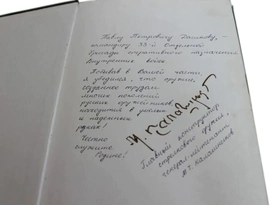 Павлу Петровичу Дашкову,
командиру 33-й Отдельной
бригады оперативного назначения
внутренних войск
Побывав в Вашей части,
я убедился, что оружие
созданное трудом
многих поколений
русских оружейников,
находится в умелых
и надежных
руках!
Честно
служите
Родине!
М. Калашников
Главный конструктор
стрелкового оружия,
генерал-лейтенант
М Т Калашников